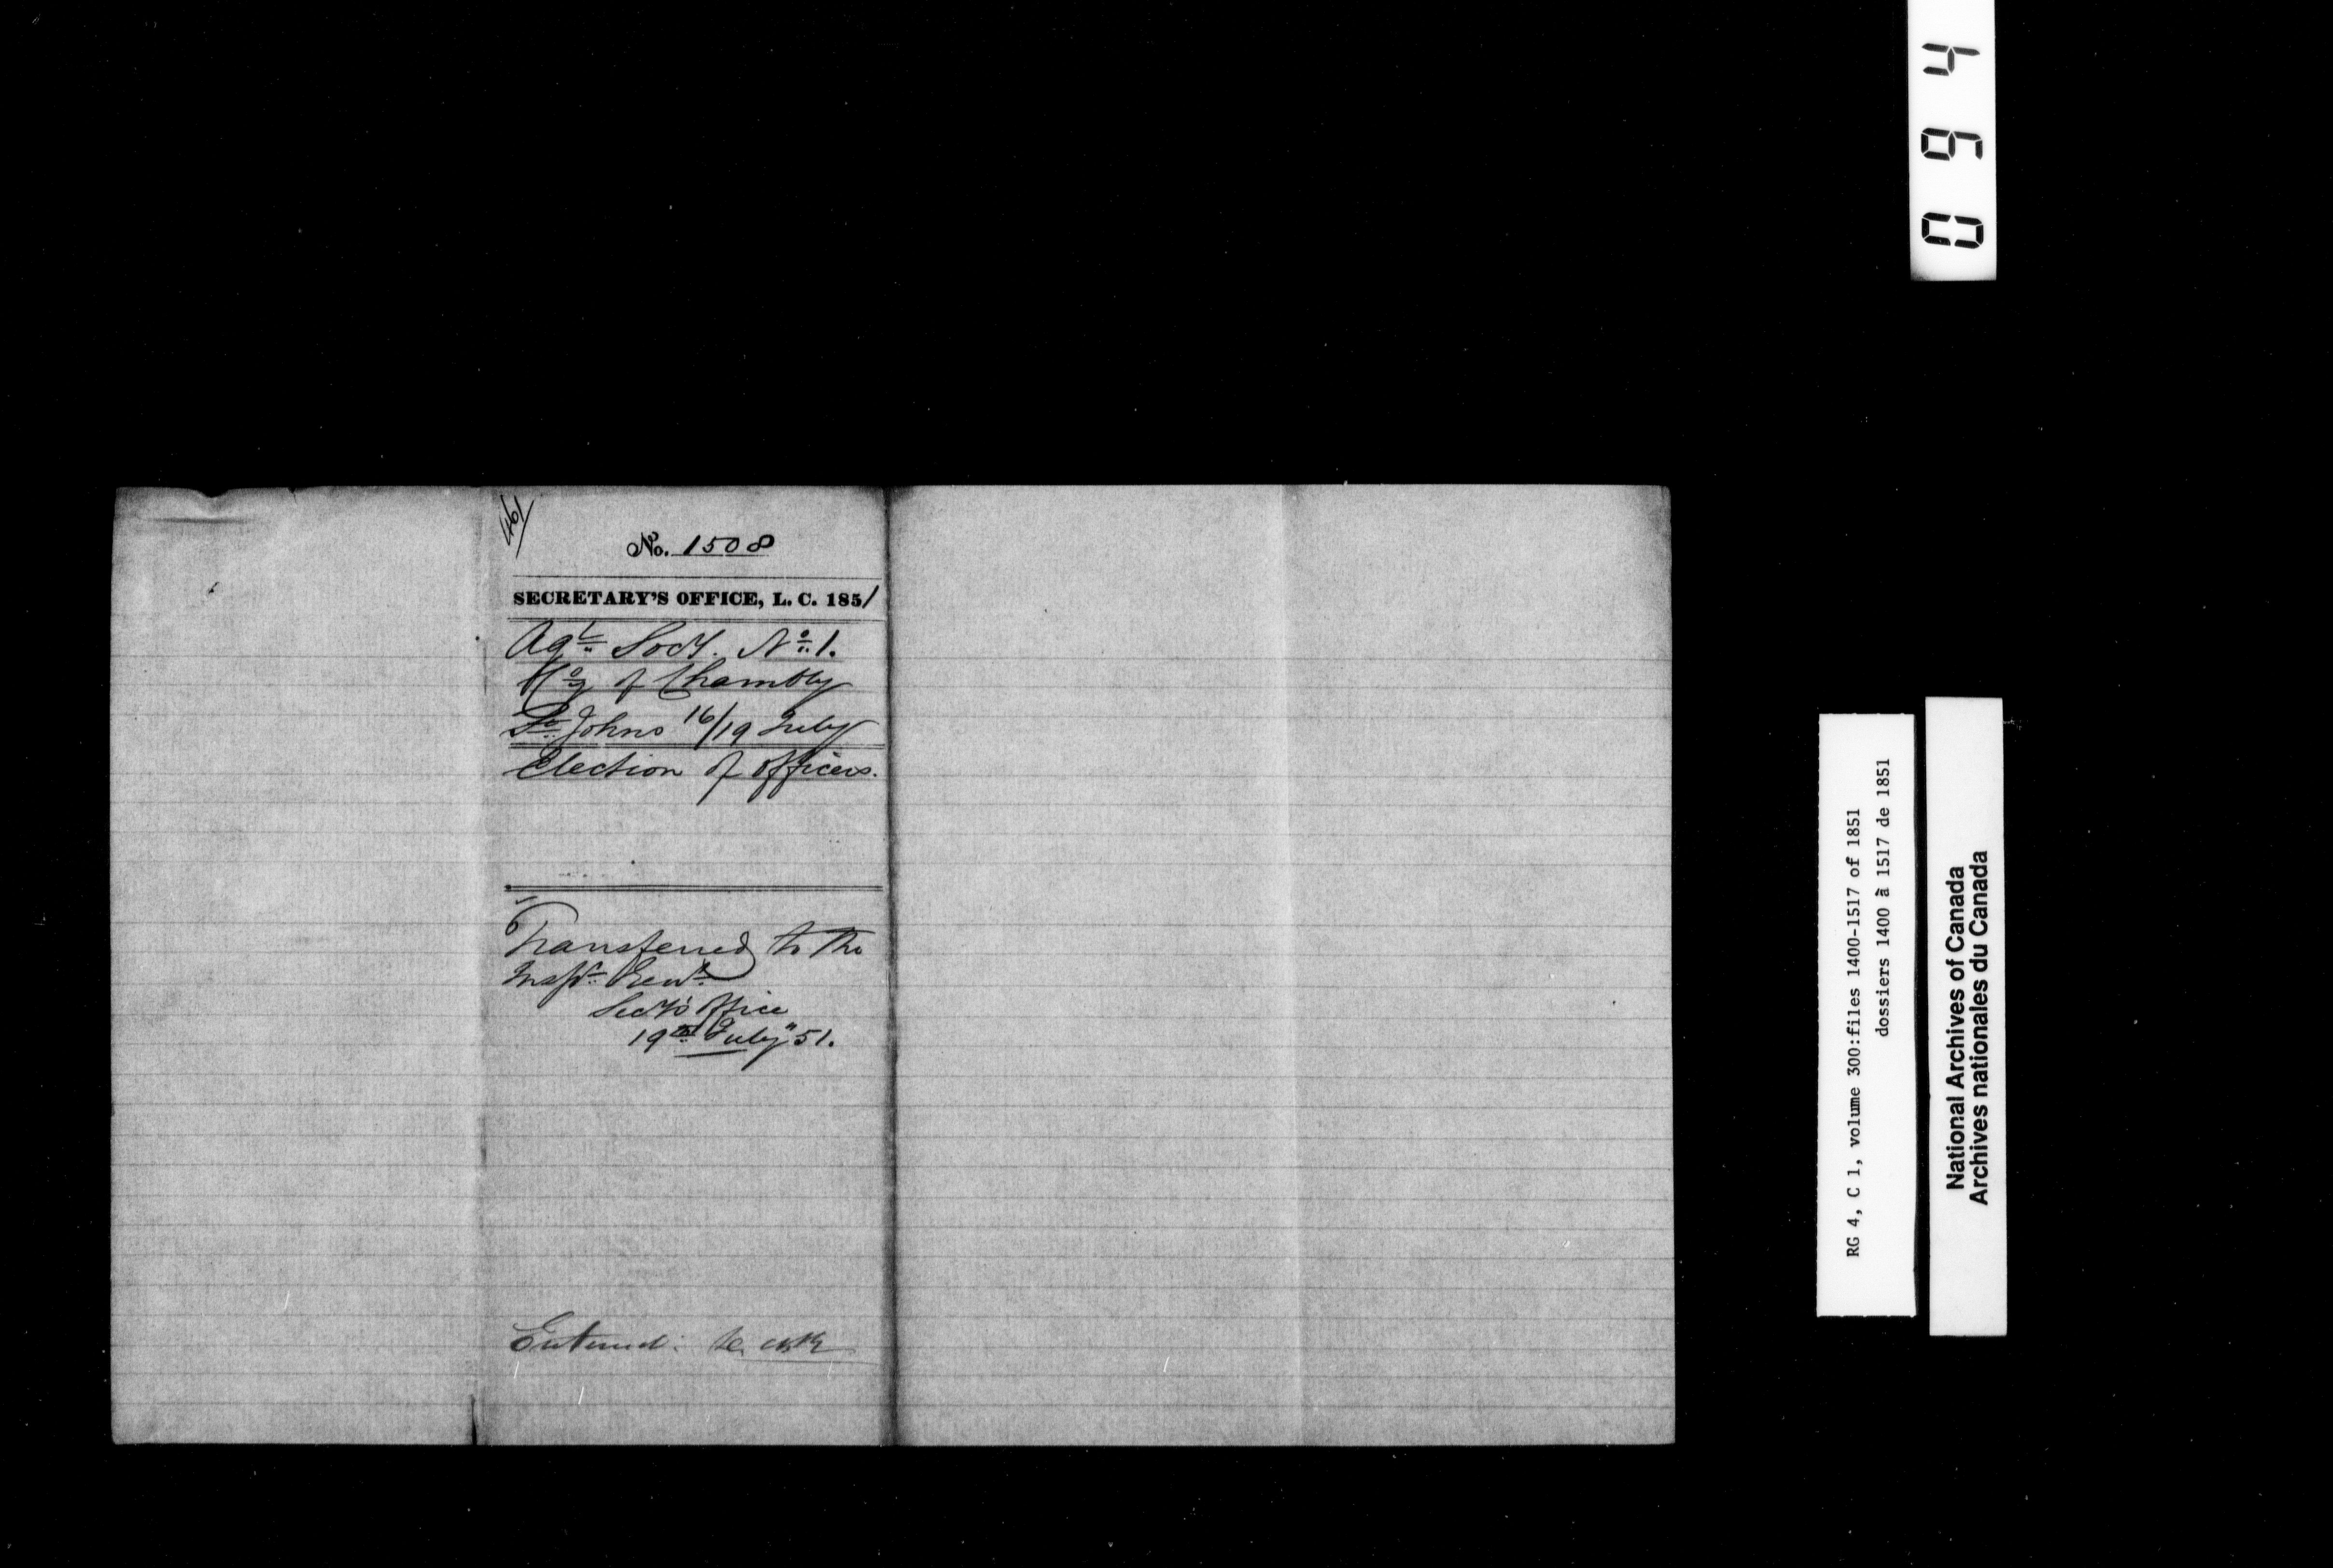 461
No. 1508
SECRETARY'S OFFICE, L. C. 1851
Agl. Socy. No. 1.
Co. of Chambly
St. Johns 16/19 July
Election of officers.
Transferred to the
Inspr. Genl.
Secy's office
19th July "51.
Entered.
0 9 4
RG 4, C 1, volume 300:files 1400-1517 of 1851
dossiers 1400 à 1517 de 1851
National Archives of Canada
Archives nationales du Canada